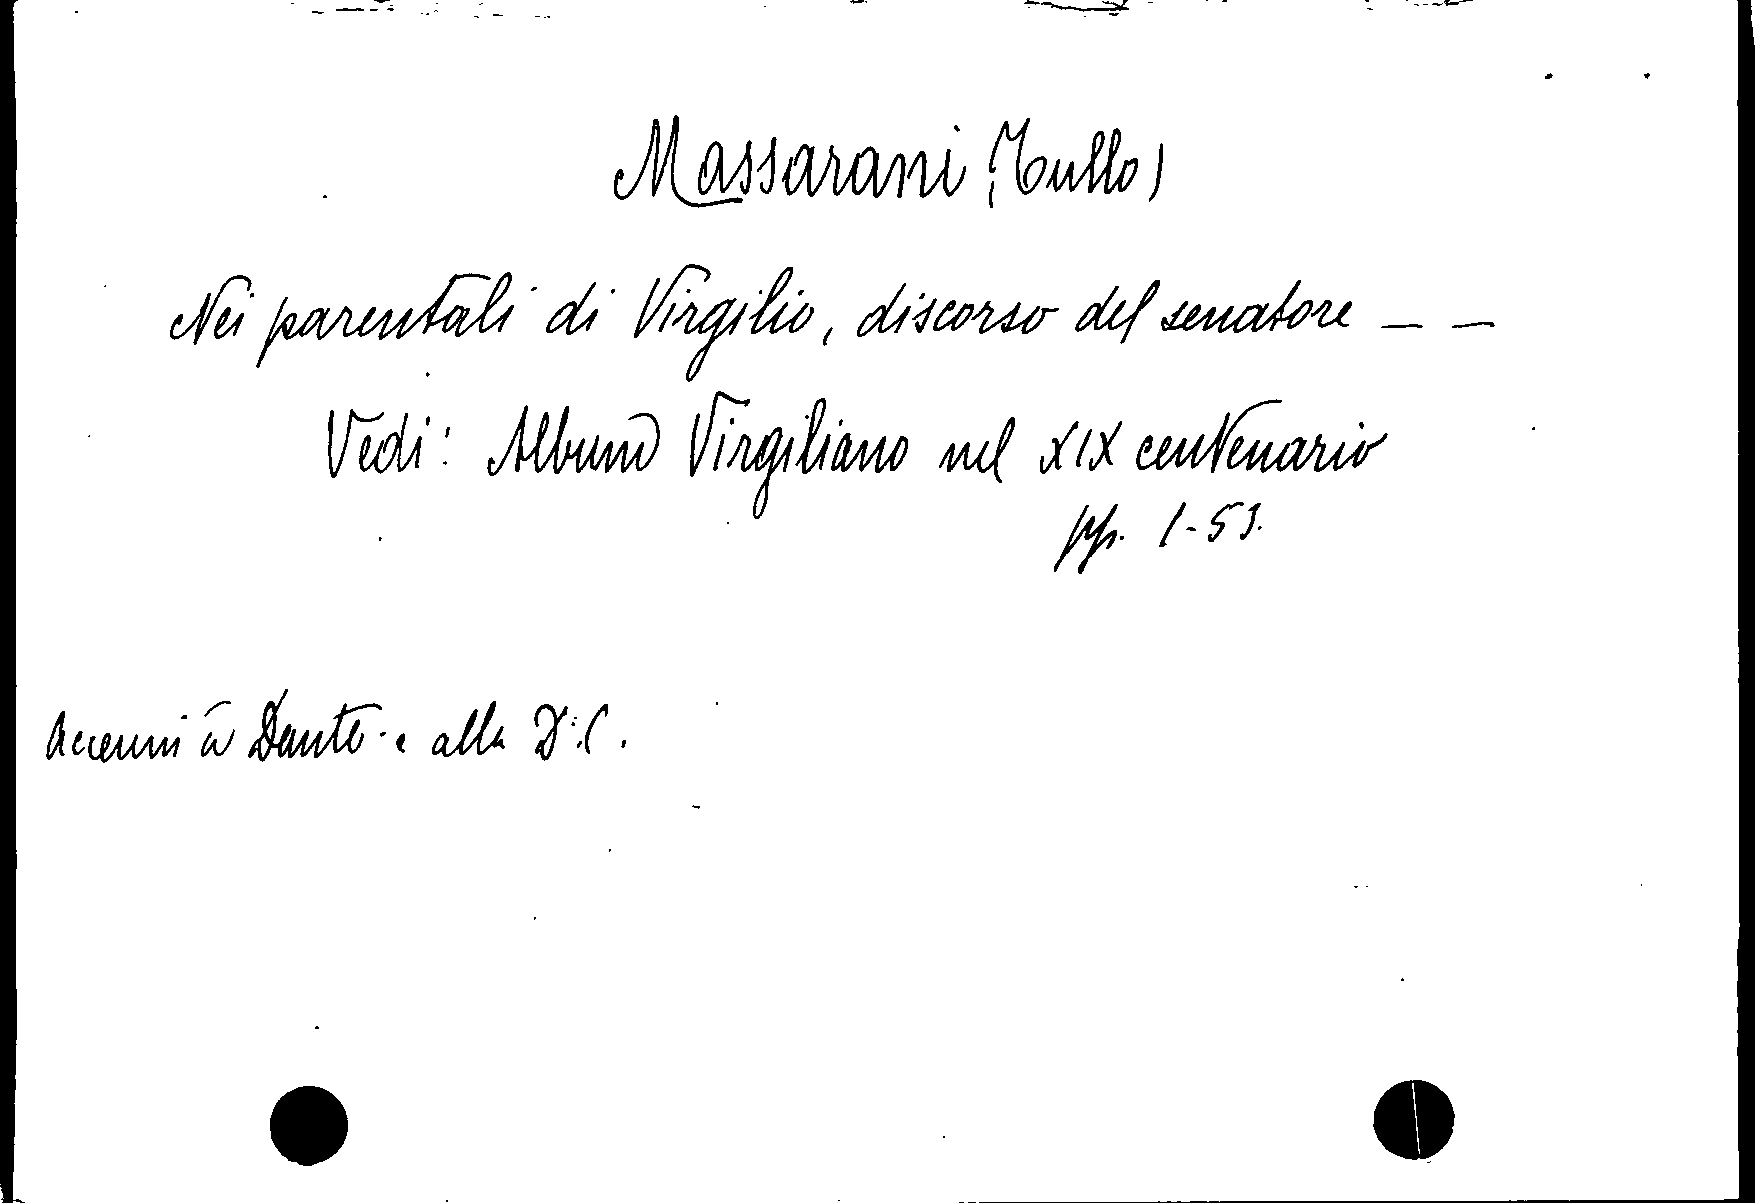 Massarani (Tullo)
Nei parentali di Virgilio, discorso del senatore — —
Vedi: Album Virgiliano nel XIX centenario
pp. 1-53.
Accenni a Dante e alla D. C.